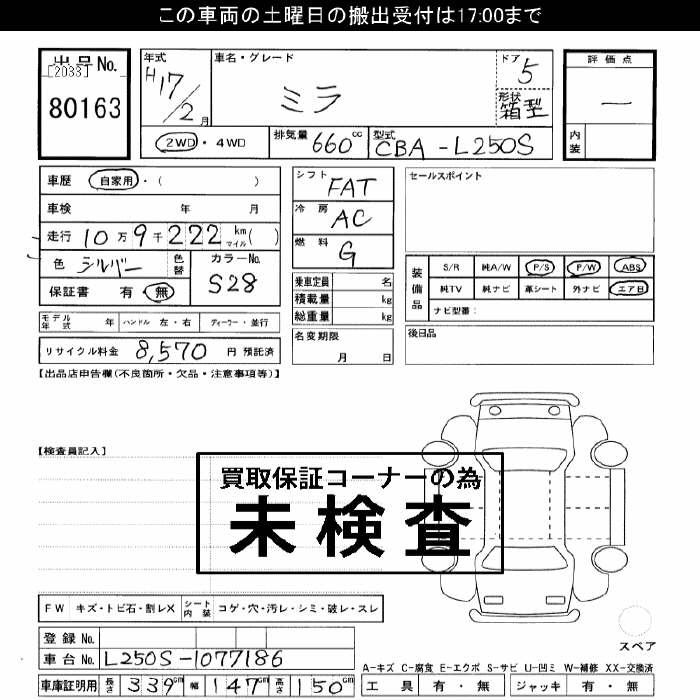 この車両の土曜日の搬出受付は17:00まで
出品No.
[2033]
80163
年式
H17/2月
車名・グレード
ミラ
ドア
5
形状
箱型
2WD・4WD
排気量 660cc
型式 CBA-L250S
評価点
―
内装
車歴 自家用・( )
車検 年 月
走行 10万9千222 km マイル( )
色 シルバー 色替
カラーNo.
S28
保証書 有・無
モデル年式 年 ハンドル 左・右 ディーラー・並行
リサイクル料金 8,570 円 預託済
シフト FAT
冷房 AC
燃料 G
乗車定員 名
積載量 kg
総重量 kg
名変期限
月 日
セールスポイント
装備品
S/R 純A/W P/S P/W ABS
純TV 純ナビ 革シート 外ナビ エアB
ナビ型番:
後日品
【出品店申告欄(不良箇所・欠品・注意事項等)】
【検査員記入】
買取保証コーナーの為
未検査
FW キズ・トビ石・割レX シート内装 コゲ・穴・汚レ・シミ・破レ・スレ
登録No.
車台No. L250S-1077186
車庫証明用 長さ 339cm 幅 147cm 高さ 150cm
スペア
A-キズ C-腐食 E-エクボ S-サビ U-凹ミ W-補修 XX-交換済
工具 有・無 ジャッキ 有・無